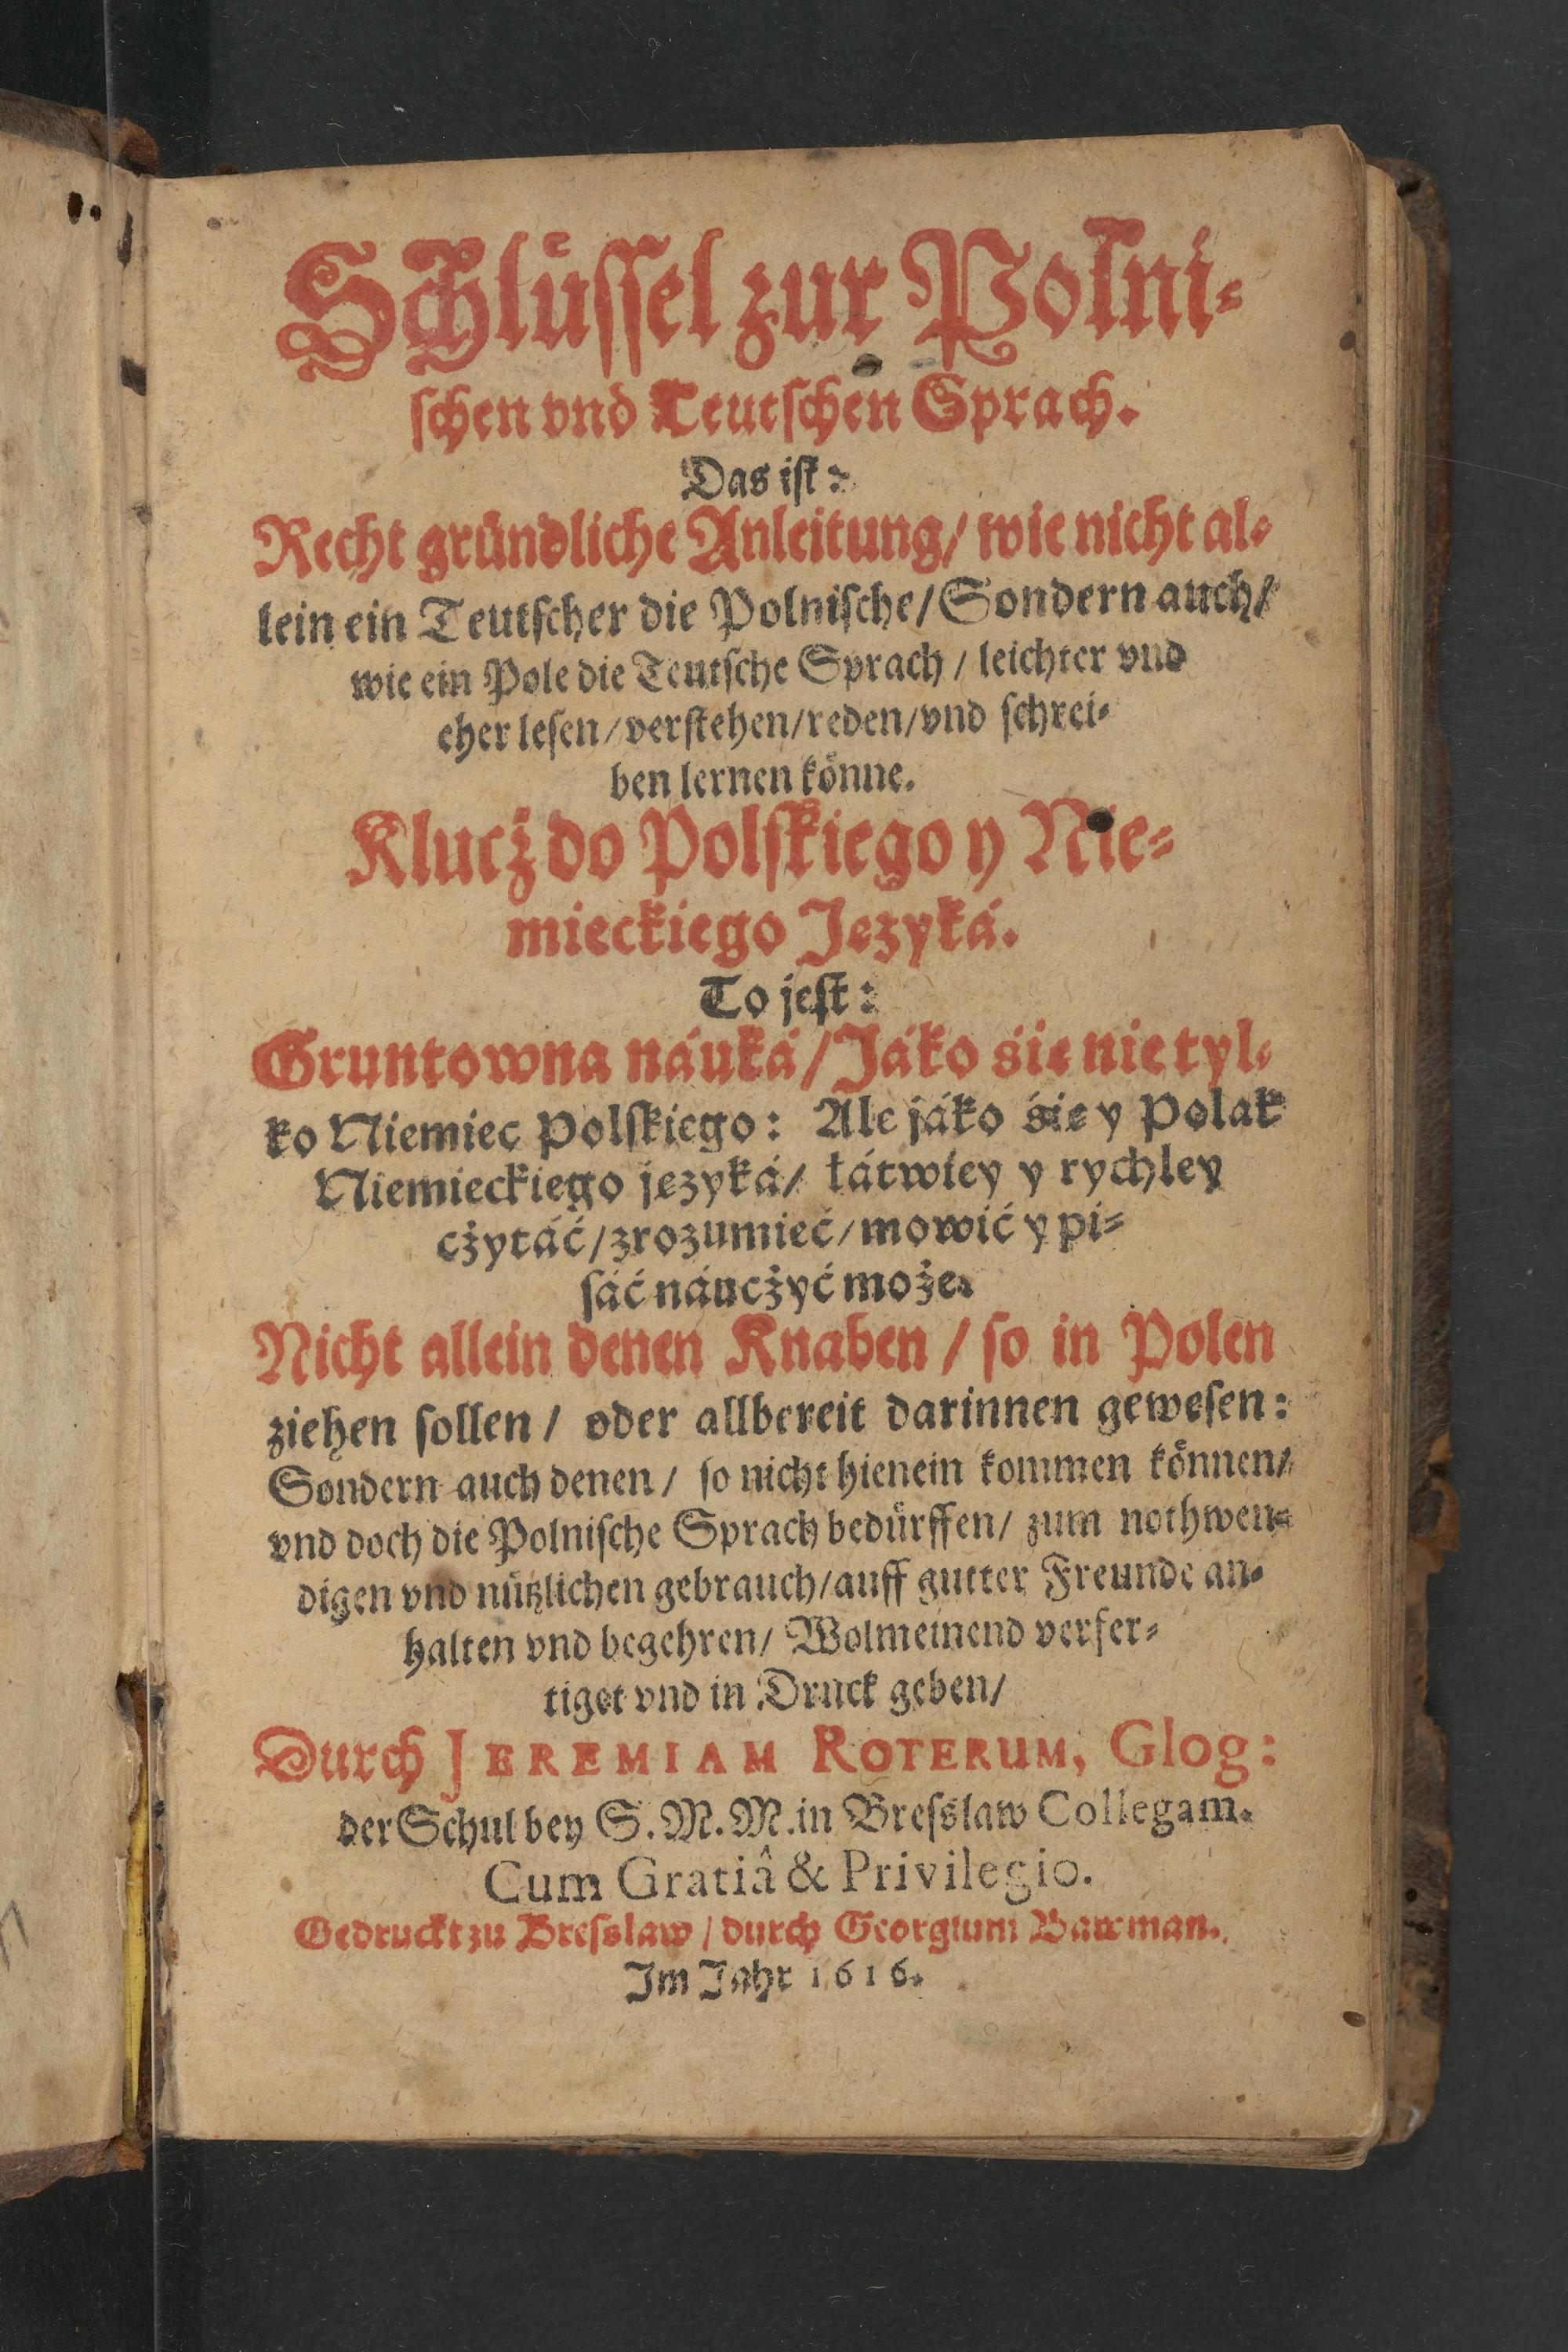 Schlüssel zur Polni-
schen vnd Teutschen Sprach.
Das ist:
Recht gründliche Anleitung/ wie nicht al-
lein ein Teutscher die Polnische/ Sondern auch/
wie ein Pole die Teutsche Sprach/ leichter vnd
eher lesen/ verstehen/ reden/ vnd schrei-
ben lernen könne.
Klucż do Polskiego y Nie-
mieckiego Języká.
To jest:
Gruntowna náuká/ Jáko śię nie tyl-
ko Niemiec Polskiego: Ale jáko śię y Polak
Niemieckiego języká/ łátwiey y rychley
cżytáć/ zrozumieć/ mowić y pi-
sáć náucżyć może.
Nicht allein denen Knaben/ so in Polen
ziehen sollen/ oder allbereit darinnen gewesen:
Sondern auch denen/ so nicht hienein kommen können/
vnd doch die Polnische Sprach bedürffen/ zum nothwen-
digen vnd nützlichen gebrauch/ auff gutter Freunde an-
halten vnd begehren/ Wolmeinend verfer-
tiget vnd in Druck geben/
Durch JEREMIAM ROTERUM, Glog:
der Schul bey S. M. M. in Bresslaw Collegam.
Cum Gratiâ & Privilegio.
Gedruckt zu Bresslaw/ durch Georgium Bawman.
Im Jahr 1616.